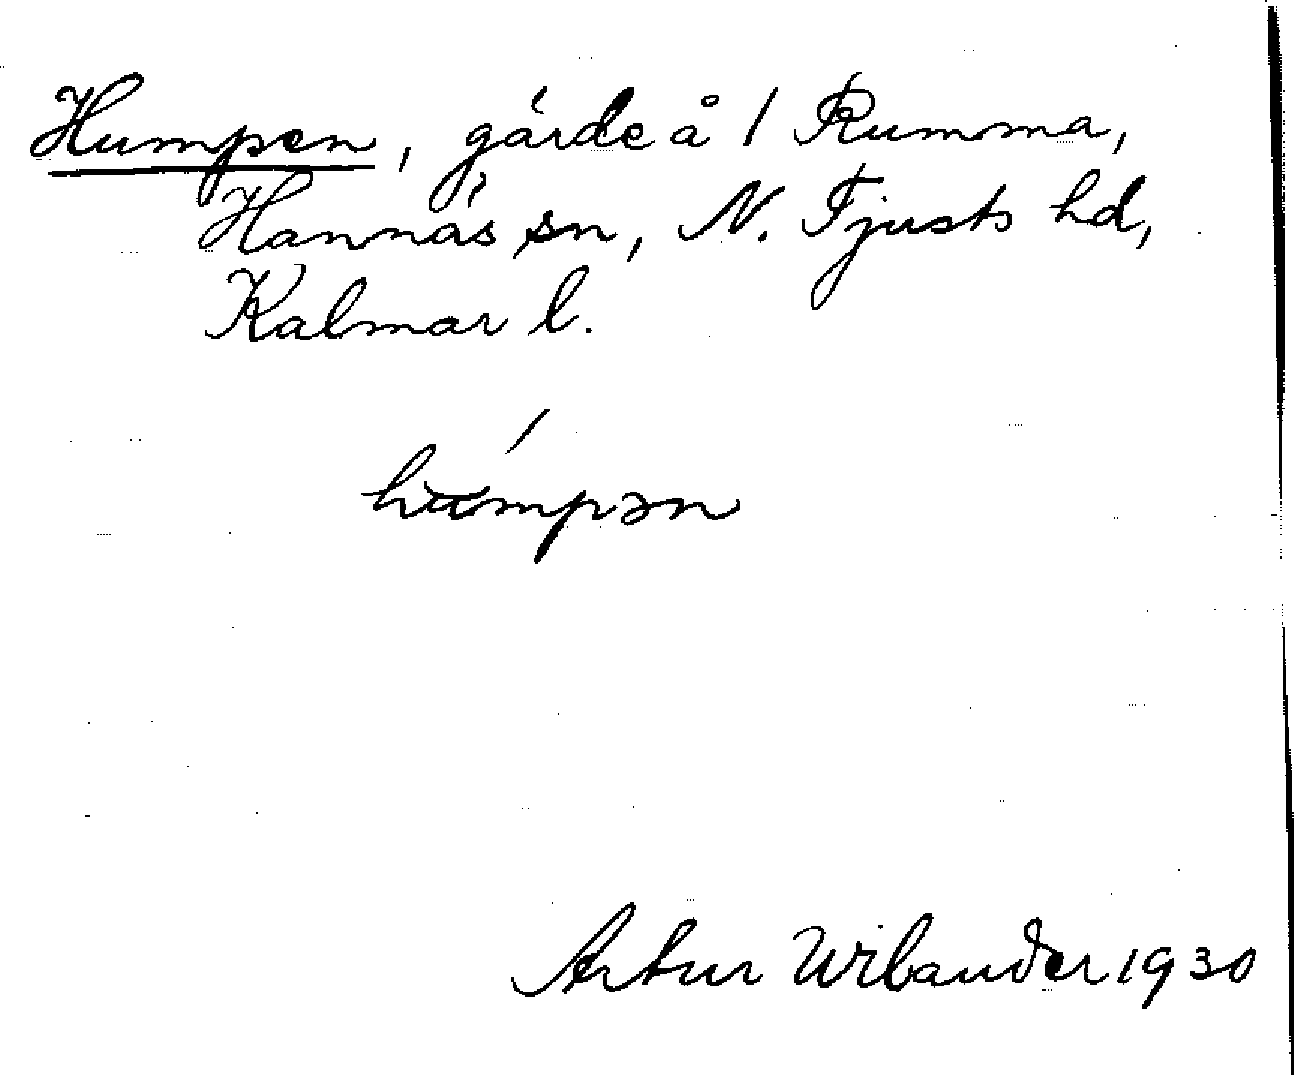 Humpen, gärde å 1 Rumma,
Hannäs sn, N. Tjusts hd,
Kalmar l.
humpən
Artur Wilander 1930